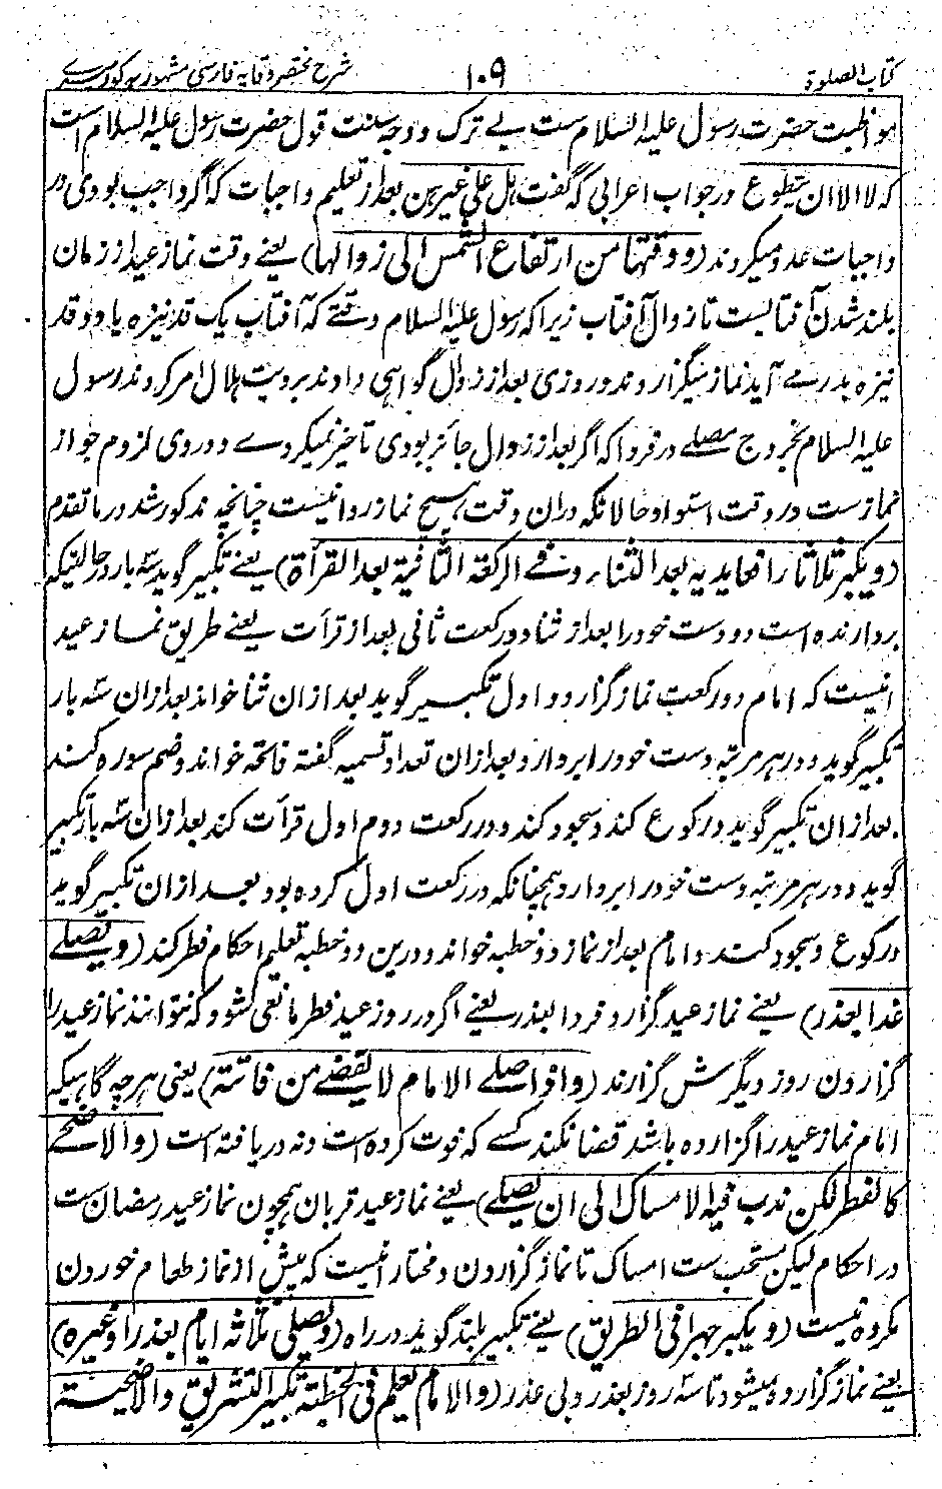 کتاب الصلوة ۱۰۹ شرح مختصر وقایه فارسی مشهور به کور میری
مواظبت حضرت رسول علیه السلام ست بے ترک و وجه سنت قول حضرت رسول علیه السلام است
که لا الا ان تطوع در جواب اعرابی که گفت هل علی غیرهن بعد از تعلیم واجبات که اگر واجب بودی در
واجبات عد و میکردند (ووقتها من ارتفاع الشمس الی زوالها) یعنے وقت نماز عید از زمان
بلند شدن آفتابست تا زوال آفتاب زیرا که رسول علیه السلام وقتے که آفتاب یک قد نیزه یا دو قد
نیزه بدر مے آید نماز میگزاردند و روزی بعد از زوال گواهی دادند برویت هلال امر کردند رسول
علیه السلام بخروج مصلے در فردا که اگر بعد از زوال جائز بودی تاخیر نمیکردے و دروی لزوم جواز
نمازست در وقت استواء و حالانکه دران وقت هیچ نماز روا نیست چنانچه مذکور شد در ما تقدم
(ویکبر ثلاثا رافعا یدیه بعد الثناء وفے الرکعة الثانیة بعد القرأة) یعنے تکبیر گوید سه بار در حالتیکه
بردارنده است دو دست خود را بعد از ثنا و در رکعت ثانی بعد از قرأت یعنے طریق نماز عید
اینست که امام دو رکعت نماز گزارد و اول تکبیر گوید بعد ازان ثنا خواند بعد ازان سه بار
تکبیر گوید و در هر مرتبه دست خود را بردارد و بعد ازان تعوذ و تسمیه گفته فاتحه خواند و ضم سوره کند
بعد ازان تکبیر گوید و رکوع کند و سجود کند و در رکعت دوم اول قرأت کند بعد ازان سه بار تکبیر
گوید و در هر مرتبه دست خود را بردارد همچنانکه در رکعت اول کرده بود بعد ازان تکبیر گوید
و رکوع و سجود کند و امام بعد از نماز دو خطبه خواند و درین دو خطبه تعلیم احکام فطر کند (ویصلے
غدا بعذر) یعنے نماز عید گزارد فردا بعذر یعنے اگر در روز عید فطر مانعی شود که نتوانند نماز عید را
گزاردن روز دیگرش گزارند (واذا صلے الامام لا یقضے من فاتته) یعنی هرچه گاهیکه
امام نماز عید را گزارده باشد قضا نکند کسے که فوت کرده است و نه دریافته است (والاضحے
کالفطر لکن ندب فیه الامساک الی ان یصلے) یعنے نماز عید قربان همچون نماز عید رمضان ست
در احکام لیکن مستحب ست امساک تا نماز گزاردن و مختار اینست که پیش از نماز طعام خوردن
مکروه نیست (ویکبر جهرا فی الطریق) یعنے تکبیر بلند گوید در راه (ویصلی ثلاثه ایام بعذر او غیره)
یعنے نماز گزارده میشود تا سه روز بعذر و بی عذر (والامام یعلم فی الخطبة تکبیر التشریق والاضحیة